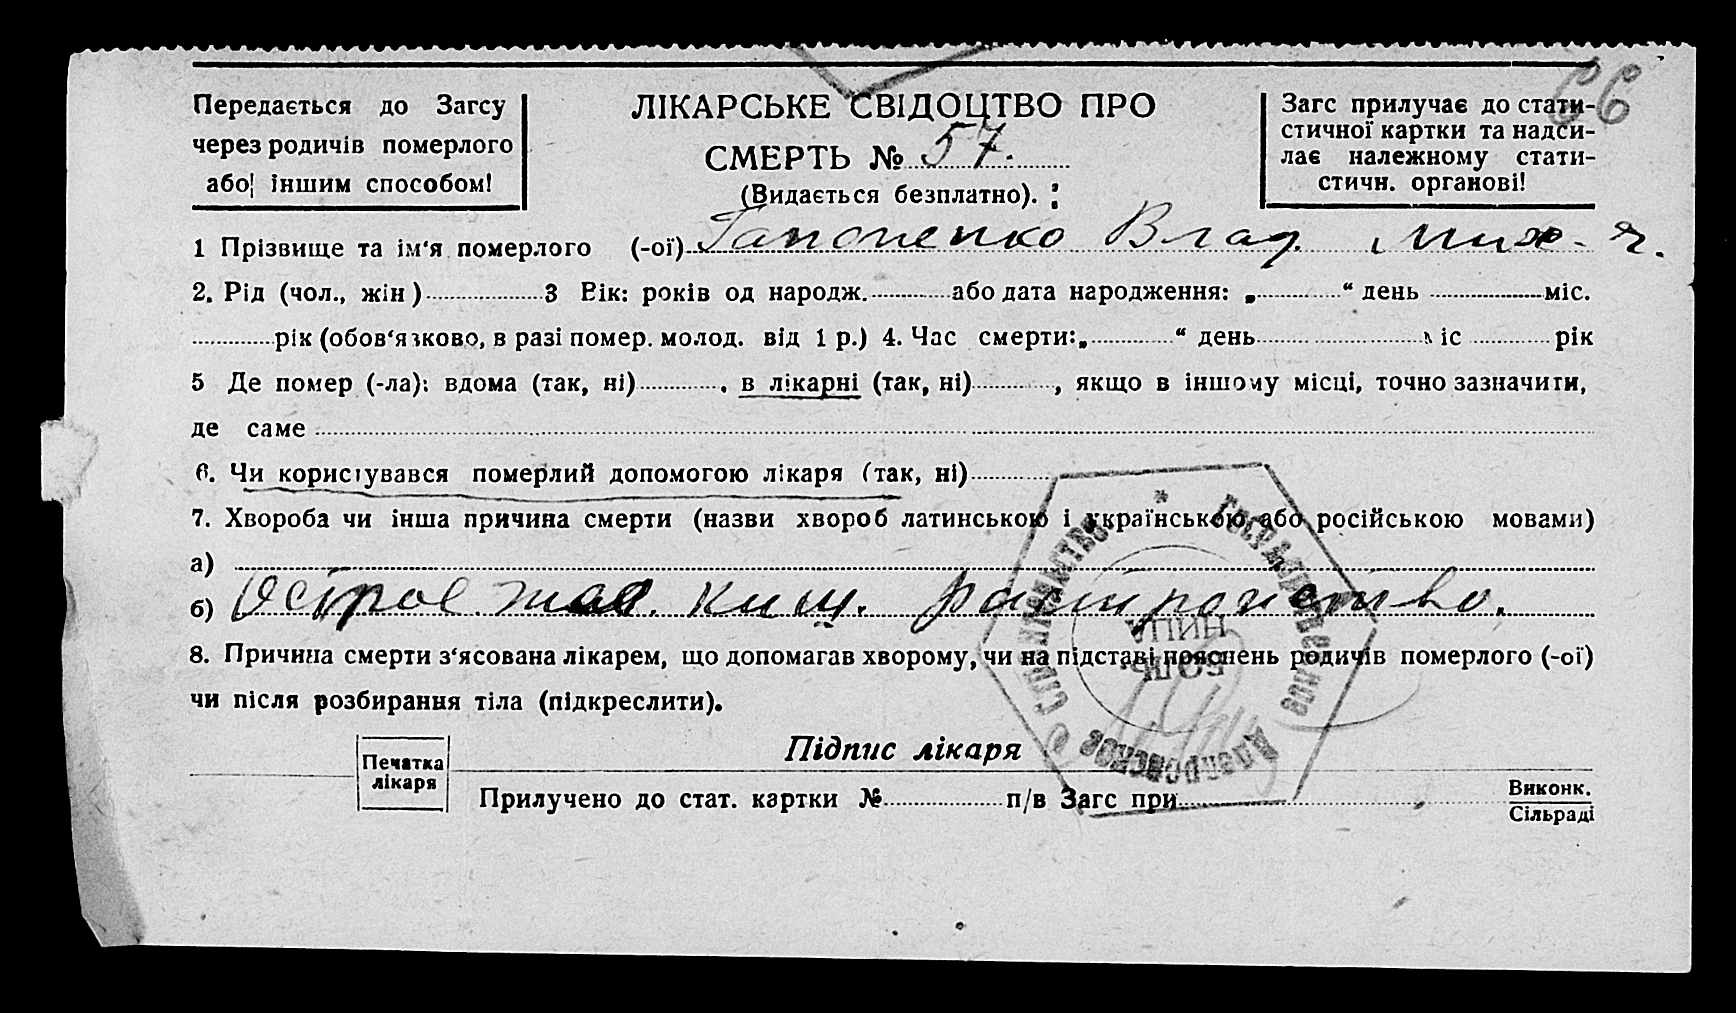 66
Передається до Загсу
через родичів померлого
або іншим способом!
ЛІКАРСЬКЕ СВІДОЦТВО ПРО
СМЕРТЬ № 57.
(Видається безплатно).
Загс прилучає до стати-
стичної картки та надси-
лає належному стати-
стичн. органові!
1 Прізвище та ім‘я померлого (-ої) Гапоненко Влад. Мих-ч.
2. Рід (чол., жін) 3 Вік: років од народж. або дата народження: „ “ день міс.
рік (обов‘язково, в разі помер. молод. від 1 р.) 4. Час смерти: „ “ день міс рік
5 Де помер (-ла): вдома (так, ні) , в лікарні (так, ні) , якщо в іншому місці, точно зазначити,
де саме
6. Чи користувався померлий допомогою лікаря (так, ні)
7. Хвороба чи інша причина смерти (назви хвороб латинською і українською або російською мовами)
а)
б) Острое жел. киш. расстройство.
8. Причина смерти з‘ясована лікарем, що допомагав хворому, чи на підставі пояснень родичів померлого (-ої)
чи після розбирання тіла (підкреслити).
Підпис лікаря
Печатка
лікаря
Прилучено до стат. картки № п/в Загс при
Виконк.
Сільраді